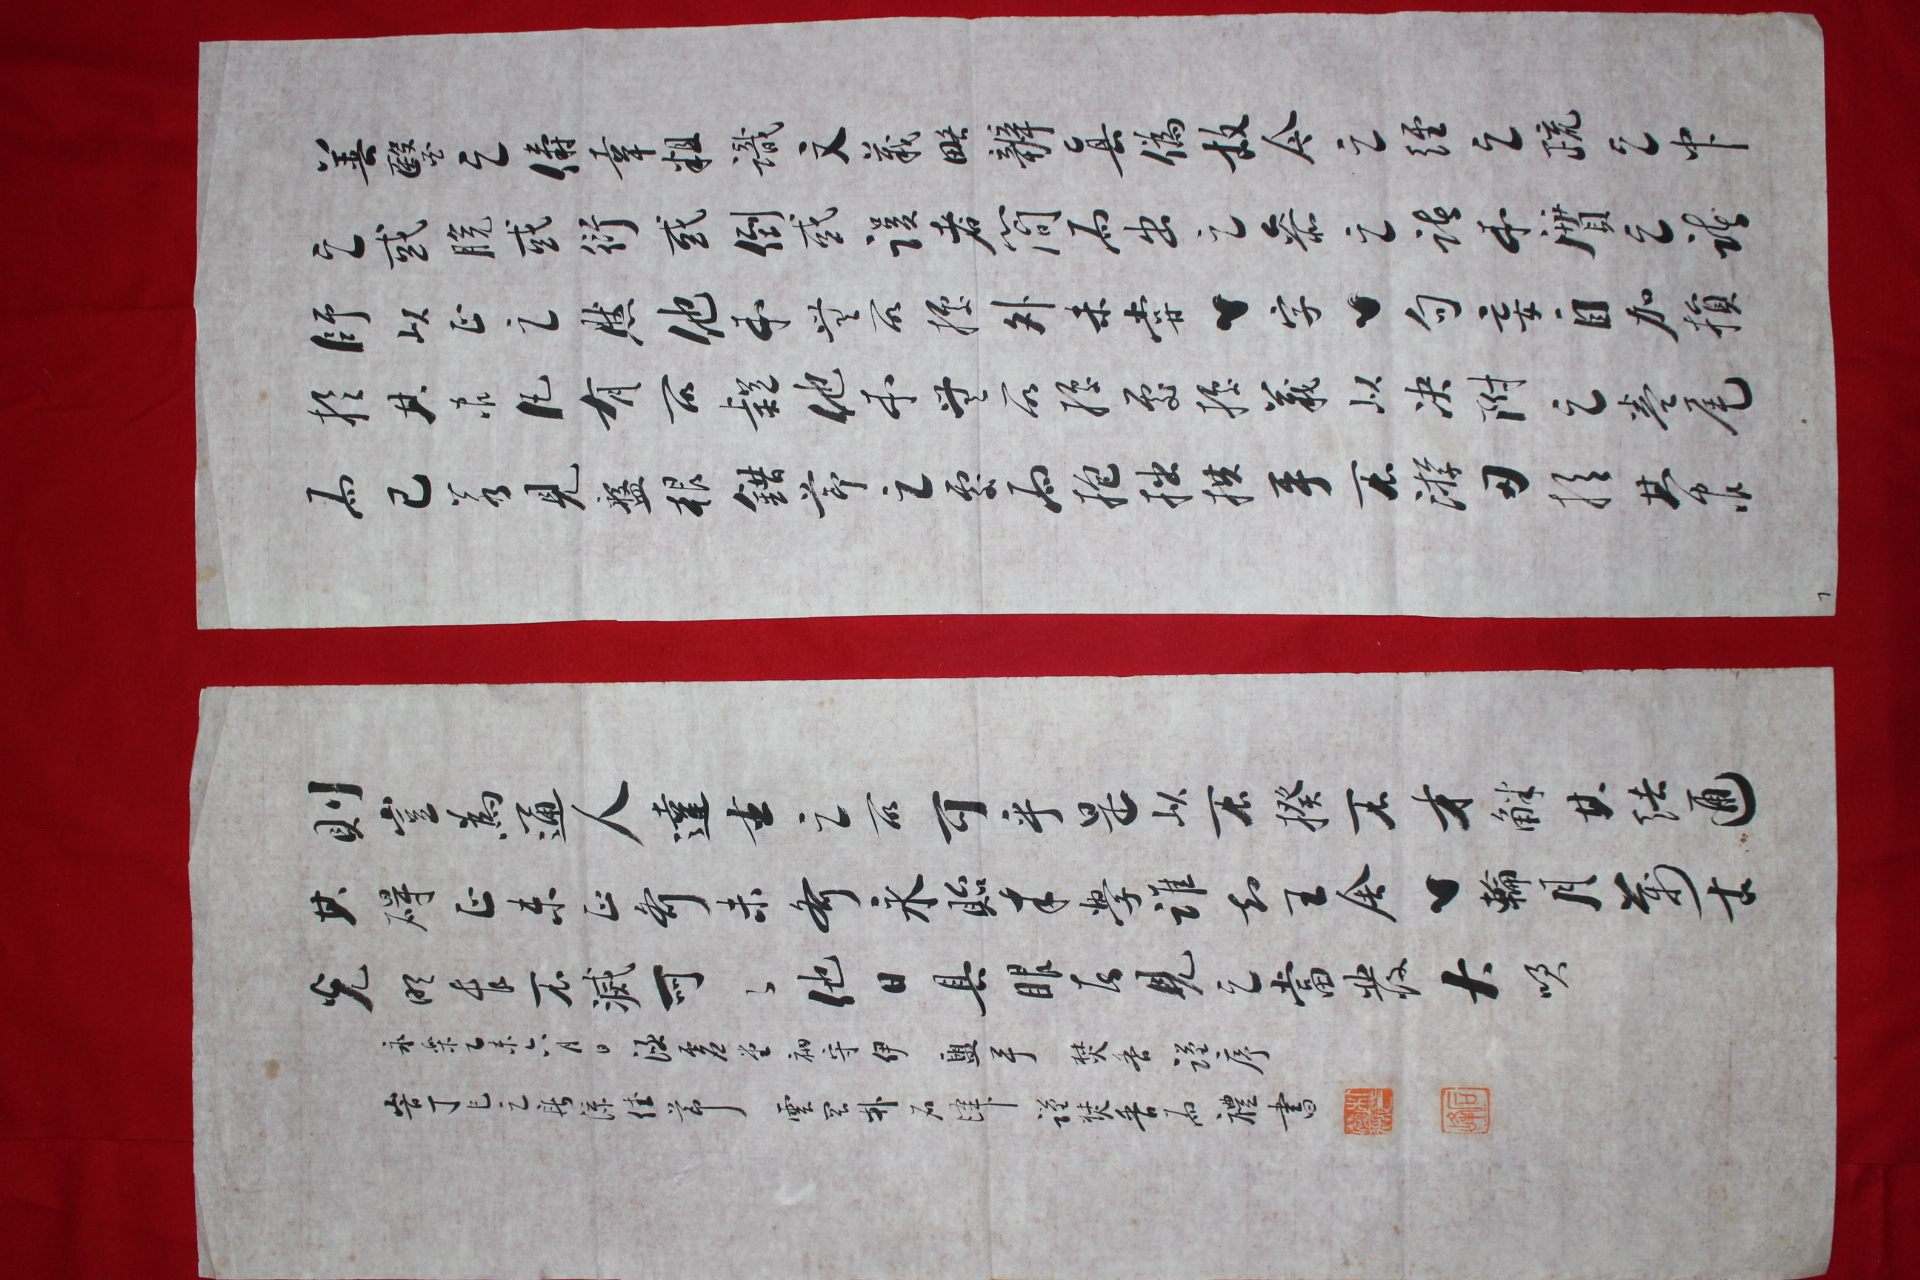 善醫之儔幸粗識文義略辨眞僞故今之經之疏之中
之或脫或衍或倒或誤者簡而出之叅之諸本質之諸
師以正之然他本無所據外未嘗一字一句妄自加損
於其間凡有所疑他本無所據處據義以決附之卷尾
而已若見盤根錯節之處而抱拙拱手不游刃於其間
則豈爲通人達士之所可乎是以不揆不才解其結通
其碍正未正齊未齊永貽來學誰知王舍一輪月萬古
光明長不滅呵〻他日具眼者見之當發大笑
永樂乙未六月日涵虛堂衲守伊盥手焚香謹序
旹丁巳之新涼佳節雲谷朴石峰謹焚香而禮書
石峰